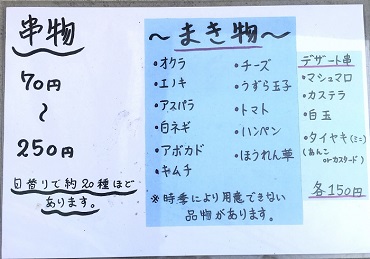 串物
70円
〜
250円
日替りで約20種ほど
あります。
〜まき物〜
・オクラ
・エノキ
・アスパラ
・白ネギ
・アボカド
・キムチ
・チーズ
・うずら玉子
・トマト
・ハンペン
・ほうれん草
※時季により用意できない
品物があります。
デザート串
・マシュマロ
・カステラ
・白玉
・タイヤキ(ミニ)
(あんこ
orカスタード)
各150円